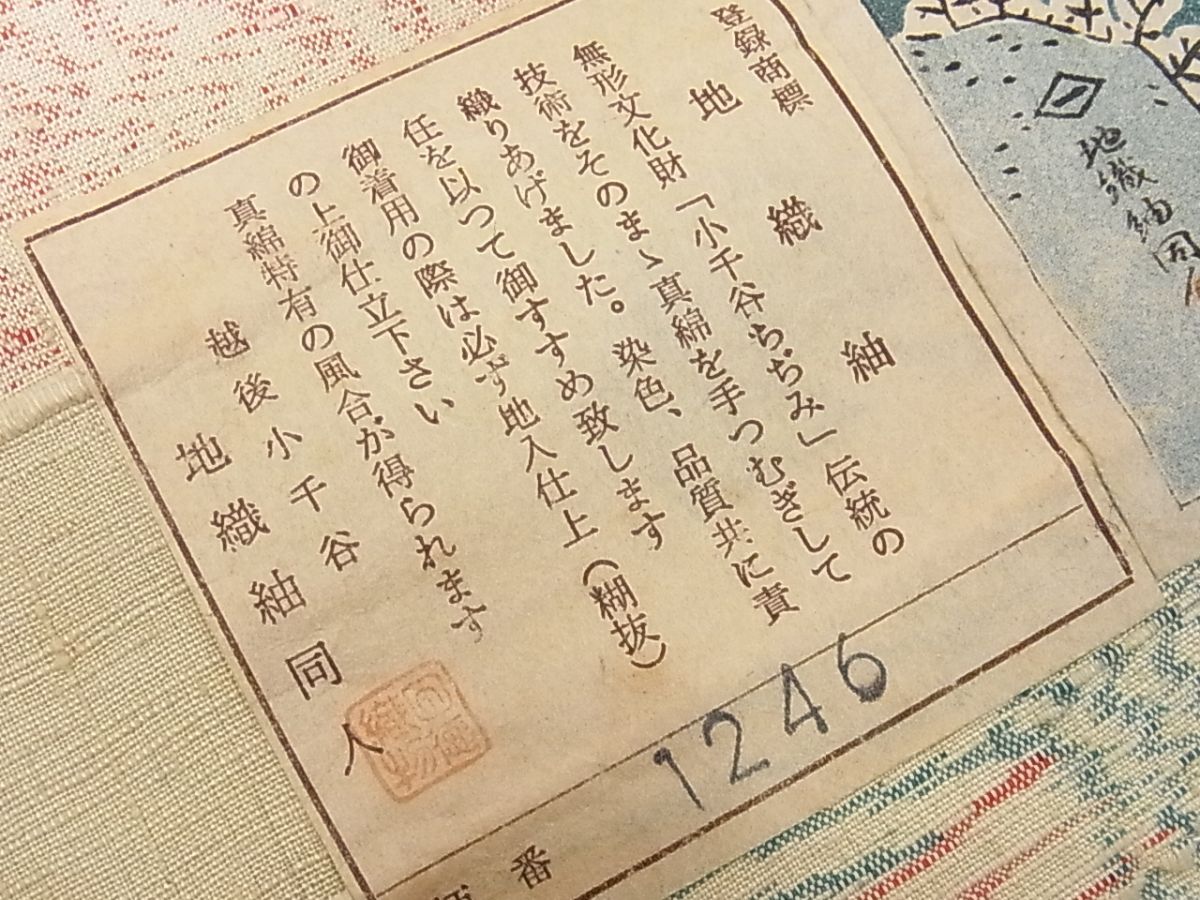 登録商標
地織紬
無形文化財「小千谷ちぢみ」伝統の
技術をそのまゝ真綿を手つむぎして
織りあげました。染色、品質共に責
任を以つて御すすめ致します
御着用の際は必ず地入仕上(糊抜)
の上御仕立下さい
真綿特有の風合が得られます
越後小千谷
地織紬同人
1246
番
地織紬同人